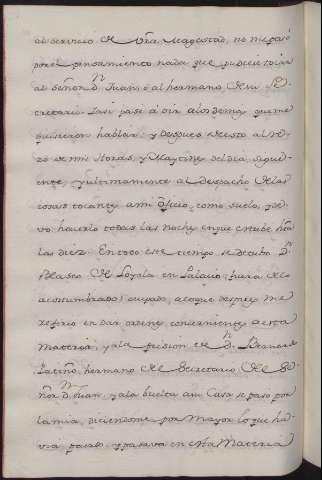 al servicio de Vra. Magestad, no me pasó
por el pensamiento nada que pudiese tocar
al señor Dn. Juan, ó al hermano de su Se-
cretario. Pasé á oir á los demas que me
quisieron hablar: y despues de esto al re-
zo de mis Horas, y Maytines del dia siguien-
ente, y ultimamente al despacho de las
cosas tocantes á mi Oficio, como suelo, y de-
vo hacerlo todas las noches, en que estube hta
las diez. En todo este tiempo se detubo Dn.
Blasco de Loyola en Palacio, fuera de lo
acostumbrado, ocupado, á lo que despues me
refirió en dar ordenes concernientes á esta
Materia, y á la prision de Dn. Bernardo
Patiño, hermano del Secretario del Se-
ñor Dn. Juan, y á la buelta á su Casa se pasó por
la mia, diciendome por Mayor lo que ha-
via pasado, y pasava en esta Materia